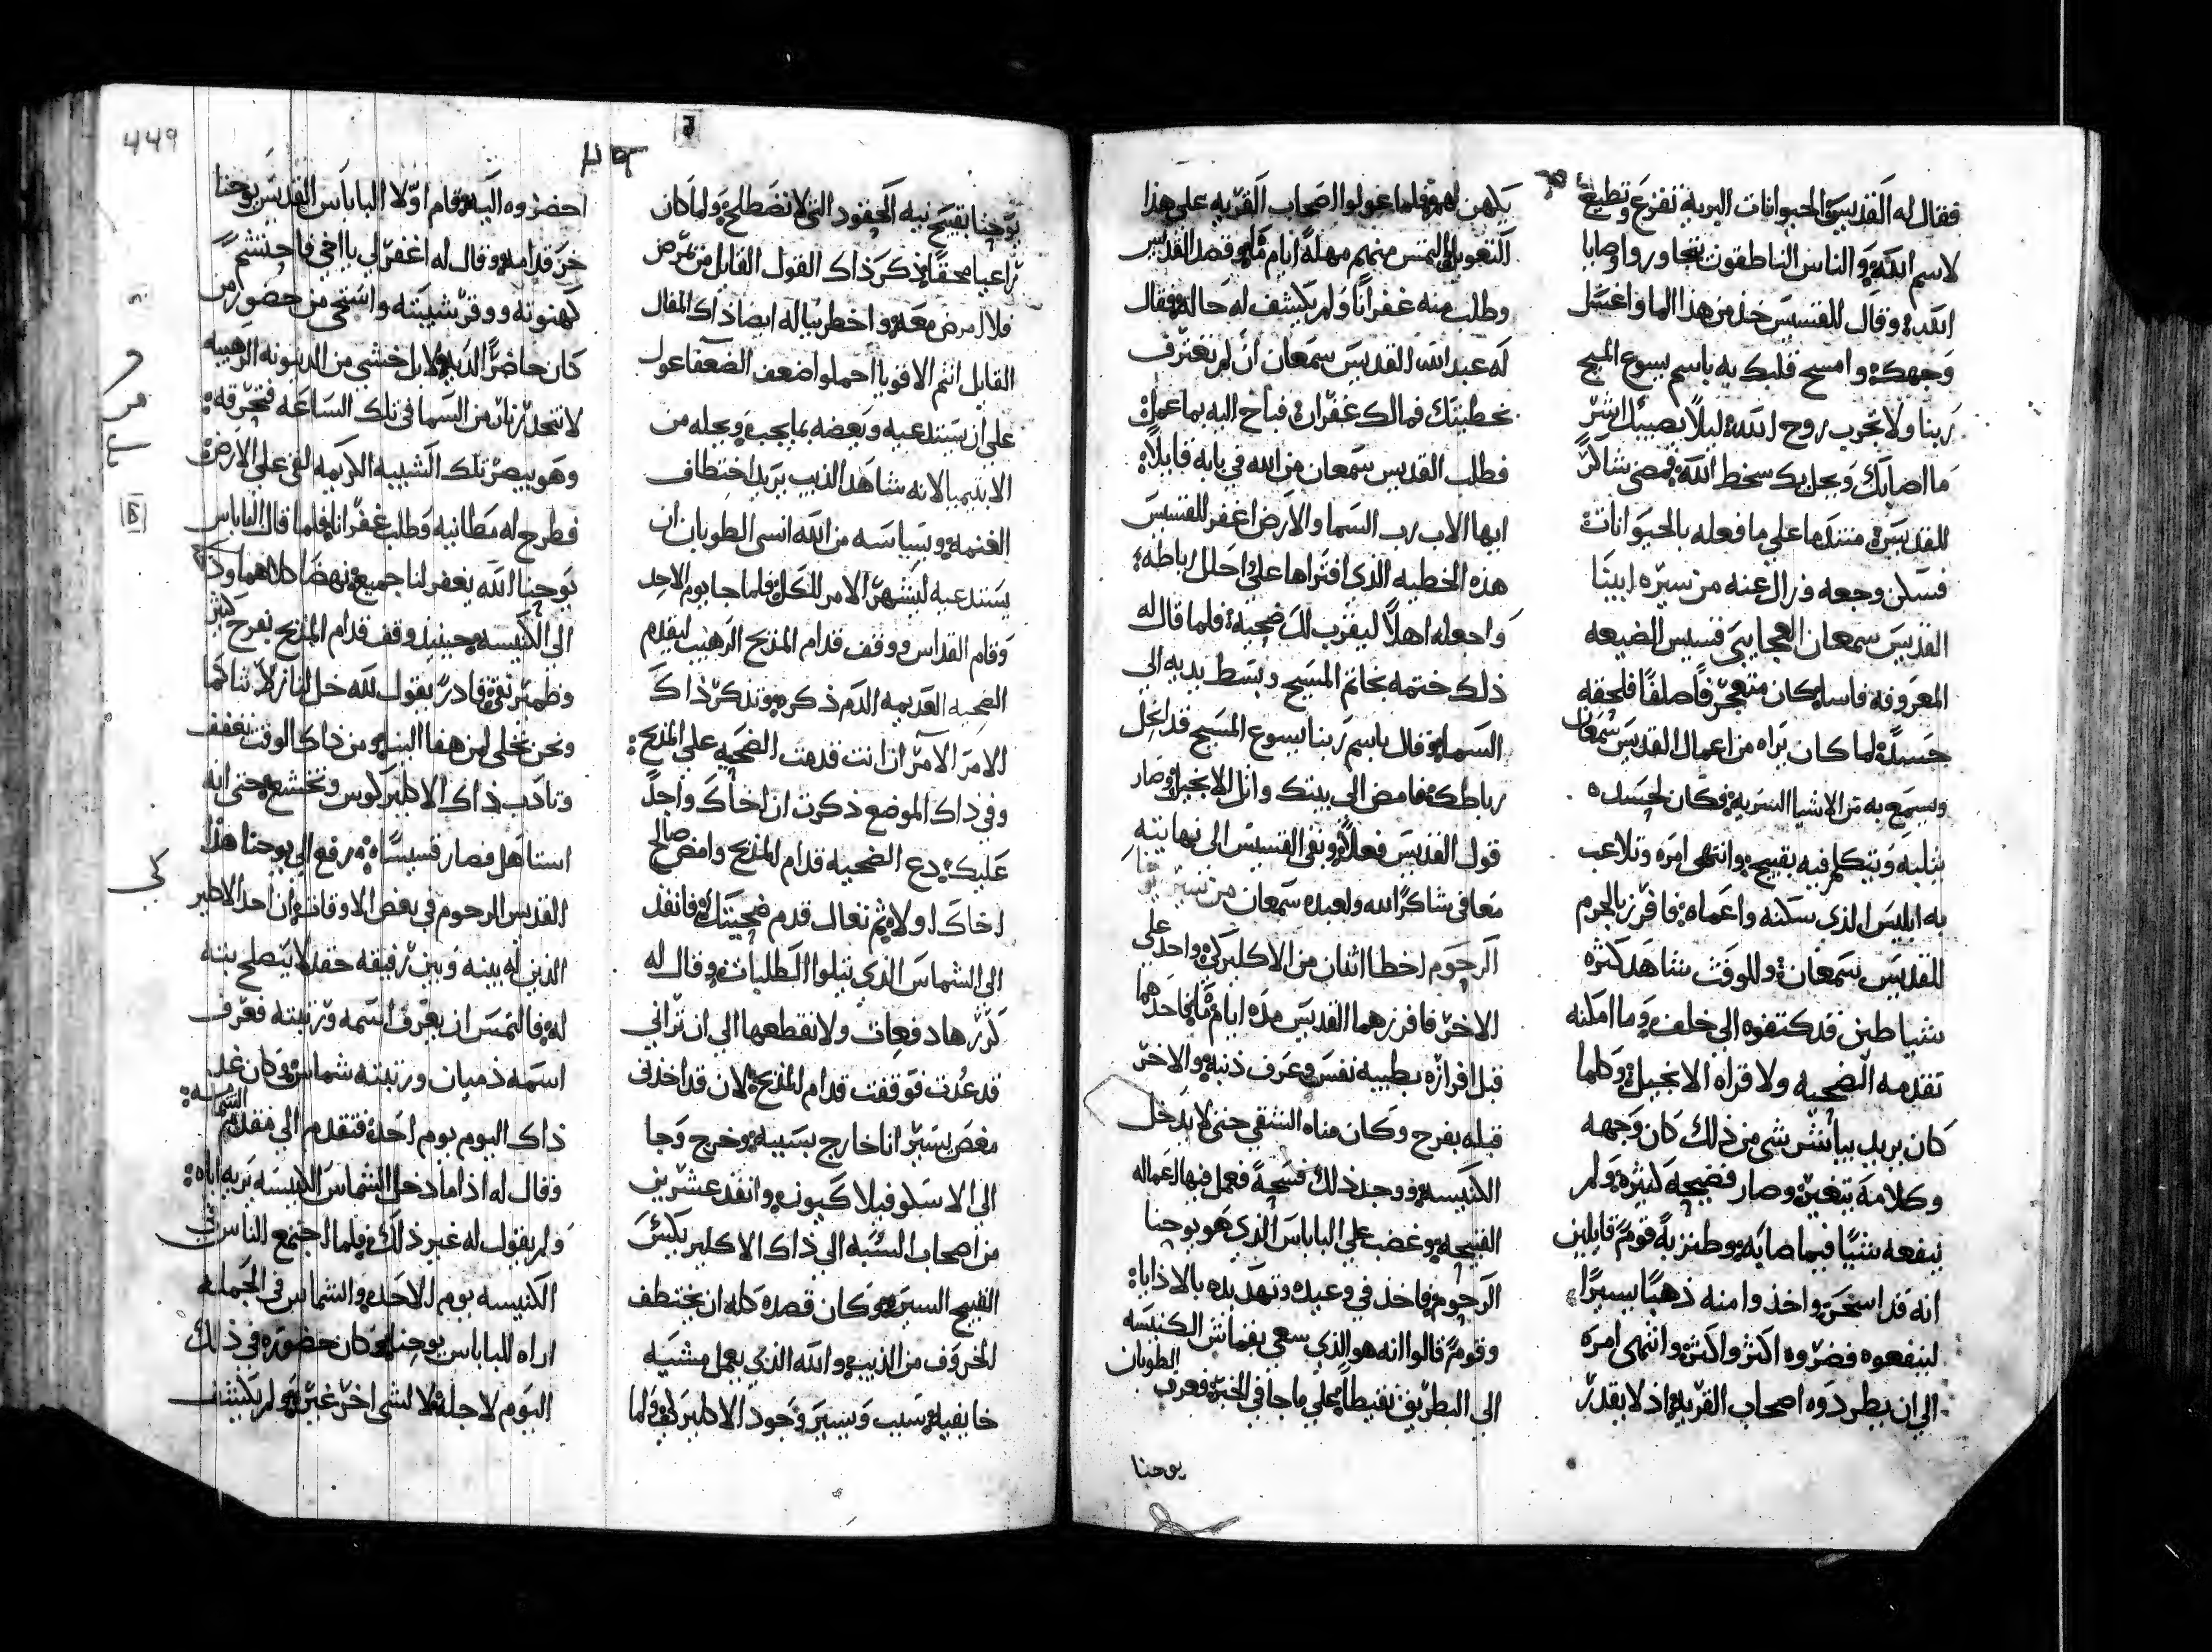 فقال له القديس الحيوانات البرية تفزع وتطيع
لاسم الله والناس الناطقون تتجاوروا وصايا
الله وقال للقسيس خذ من هذا الما واغسل
وجهك وامسح قلبك به باسم يسوع المسيح
ربنا ولا تجرب روح الله ليلا يصيبك اشر
ما اصابك ويحل بك سخط الله فمضى شاكر
للقديس متندما على ما فعله بالحيوانات
فسكن وجعه وزال عنه من سيره ابينا
القديس سمعان العجايبي قسيس الضيعه
المعروفه فاسيا كان متعجرفا صلفا فلحقه
حسد لما كان يراه من اعمال القديس سمعان
ويسمع به من الاشيا السريه فكان لحسده
يثلبه ويتكلم فيه بقبيح وانتهى امره وتلاعب
به ابليس الذي سكنه واعماه فافرز بالجرم
للقديس سمعان وللوقت شاهد كثره
شياطين قد كتفوه الى خلف وما امكنه
تقدمه الضحيه ولا قراه الانجيل وكلما
كان يريد يباشر شي من ذلك كان وجهه
وكلامه يتغير وصار فضيحه كثيره ولم
ينفعه شيا فيما صابه وطنز به قوم قايلين
انه قد اسحر واخذوا منه ذهبا يسيرا
لينفعوه فضروه اكثر واكثر وانتهى امره
الى ان يطردوه اصحاب القريه اذ لا يقدر
يكهن لهم فلما عولوا اصحاب القريه على هذا
التعويل التمس منهم مهله ايام ما وقصد القديس
وطلب منه غفرانا ولم يكشف له حاله فقال
له عبد الله القديس سمعان ان لم تعترف
بخطيتك فمالك غفران فباح اليه بما عمل
فطلب القديس سمعان من الله في بابه قايلا
ايها الاب رب السما والارض اغفر للقسيس
هذه الخطيه الذي افتراها علي احلل رباطه
واجعله اهلا ليقرب لك ضحيه فلما قال له
ذلك ختمه بخاتم المسيح وبسط يديه الى
السما وقال باسم ربنا يسوع المسيح قد انحل
رباطك فامض الى بيتك واتل الانجيل وصار
قول القديس فعلا وبقى القسيس الى نهايته
معافى شاكرا لله ولعبده سمعان من سير
الرحوم اخطا اثنان من الاكليركي واحد على
الاخر فافرزهما القديس مده ايام ما فاحدهما
قبل افرازه بطيبه نفس وعرف ذنبه والاخر
قبله بفرح وكان مناه الشقي حتى لا يدخل
الكنيسه ووجد ذلك فسحه فعمل فيها اعماله
القبيحه وغضب على الباباس الذي هو يوحنا
الرحوم فاخذ في وعيده وتهديده بالاذايا
وقوم قالوا انه هو الذي سعى بقماش الكنيسه
الى البطريق نقيطا على ما جا في الخبر فعرف الطوبان
يوحنا
449
يوحنا بقبيح نيه الحقود التي لا تصطلح ولما كان
راعيا محقا ذكر ذاك القول القايل من تمرض
فلا امرض معه واخطر بباله ايضا ذاك المقال
القايل انتم الاقويا احملوا ضعف الضعفا عول
على ان يستدعيه ويعضه بما يجب ويحله من
الابتيميا لانه شاهد الذيب يريد اختطاف
الغنمه وبسياسه من الله انسى الطوبان ان
يستدعيه ليشهر الامر للكل فلما جا يوم الاحد
وقام القداس ووقف قدام المذبح الرهيب ليقدم
الضحيه العديمه الدم ذكره وتذكر ذاك
الامر الامر ان انت قدمت الضحيه على المذبح
وفي ذاك الموضع ذكرت ان اخاك واجدا
عليك دع الضحيه قدام المذبح وامض صالح
اخاك اولا ثم تعال قدم ضحيتك فانفذ
الى الشماس الذي يتلوا الطلبات وقال له
كررها دفعات ولا تقطعها الى ان تراني
قد عدت فوقفت قدام المذبح لان قد اخذني
مغص يسير انا خارج بسببه وخرج وجا
الى الاسكوفيلاكيون وانفذ عشرين
من اصحاب الشبه الى ذاك الاكليريكس
القبيح السيره وكان قصده كله ان يختطف
الخروف من الذيب والله الذي يعمل مشيه
خايفيه سبب ويسير وجود الاكليركي ولما
احضروه اليه وقام اولا الباباس القديس يوحنا
خر قدامه وقال له اغفر لي يا اخي فاحتشم
كهنوته ووقر شيبته واستحى من حضور من
كان حاضرا لديه لا بل اخشى من الدينونه الرهيبه
لا تتحدر نار من السما في تلك الساعه فتحرقه
وهو يبصر تلك الشيبه الكريمه لقى على الارض
فطرح له مطانيه وطلب غفرانا فلما قال الباباس
يوحنا الله يغفر لنا جميع نهضا كلاهما وذ
الى الكنيسه وحينيذ وقف قدام المذبح بفرح كثير
وطمئن نقي قادر يقول لله خل لنا زلاتنا كما
ونحن نخلي لمن هفا الينا ومن ذاك الوقت تعفف
وتادب ذاك الاكليركوس وتخشع حتى انه
استاهل فصار قسيسا رفع الى يوحنا هذا
القديس الرحوم في بعض الاوقات ان احد الاكلير
الذين له بينه وبين رفيقه حقد لا يتصلح بنه
له فالتمس ان يعرف اسمه ورتبته فعرف
اسمه ذميان ورتبته شماس وكان غد
ذاك اليوم يوم احد فتقدم الى مقدم الشمامسه
وقال له اذا ما دخل الشماس الكنيسه يريه اياه
ولم يقول له غير ذلك فلما اجتمع الناس في
الكنيسه يوم الاحد والشماس في الجمله
اراه للباباس يوحنا وكان حضوره في ذلك
اليوم لاجله لا لشي اخر غيره ولم يكشف